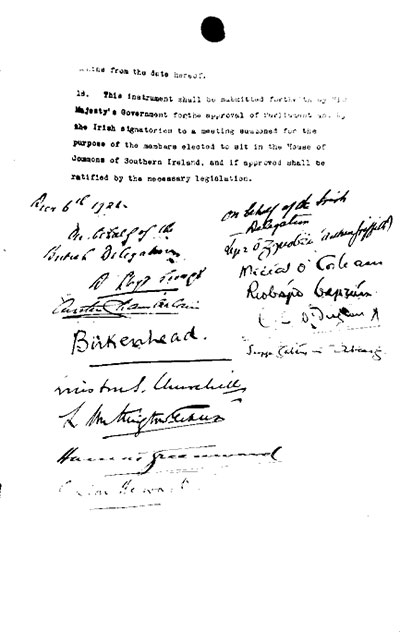 from the date hereof.
18. This instrument shall be submitted forthwith by His
Majesty's Government forthe approval of Parliament and by
the Irish signatories to a meeting summoned for the
purpose of the members elected to sit in the House of
Commons of Southern Ireland, and if approved shall be
ratified by the necessary legislation.
Decr 6th 1921.
On behalf of the
British Delegation
D Lloyd George
Austen Chamberlain
Birkenhead.
Winston S. Churchill
L Worthington-Evans
Hamar Greenwood
Gordon Hewart
On behalf of the Irish
Delegation
Art Ó Gríobhtha (Arthur Griffith)
Micheál Ó Coileain
Riobárd Bartún